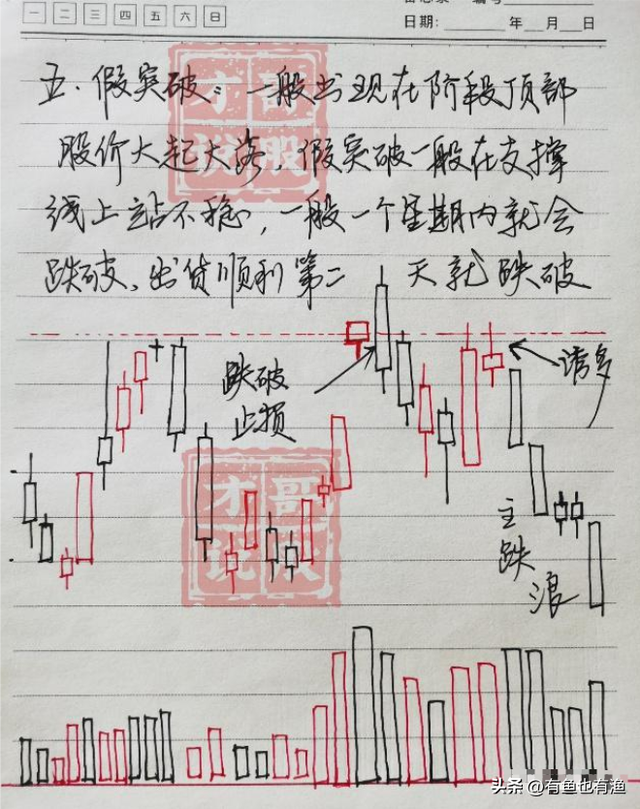 一 二 三 四 五 六 日
日期: 年 月 日
五.假突破:一般出现在阶段顶部
股价大起大落,假突破一般在支撑
线上站不稳,一般一个星期内就会
跌破、出货顺利第二天就跌破
跌破
止损
诱多
主
跌
浪
头条 @有鱼也有渔